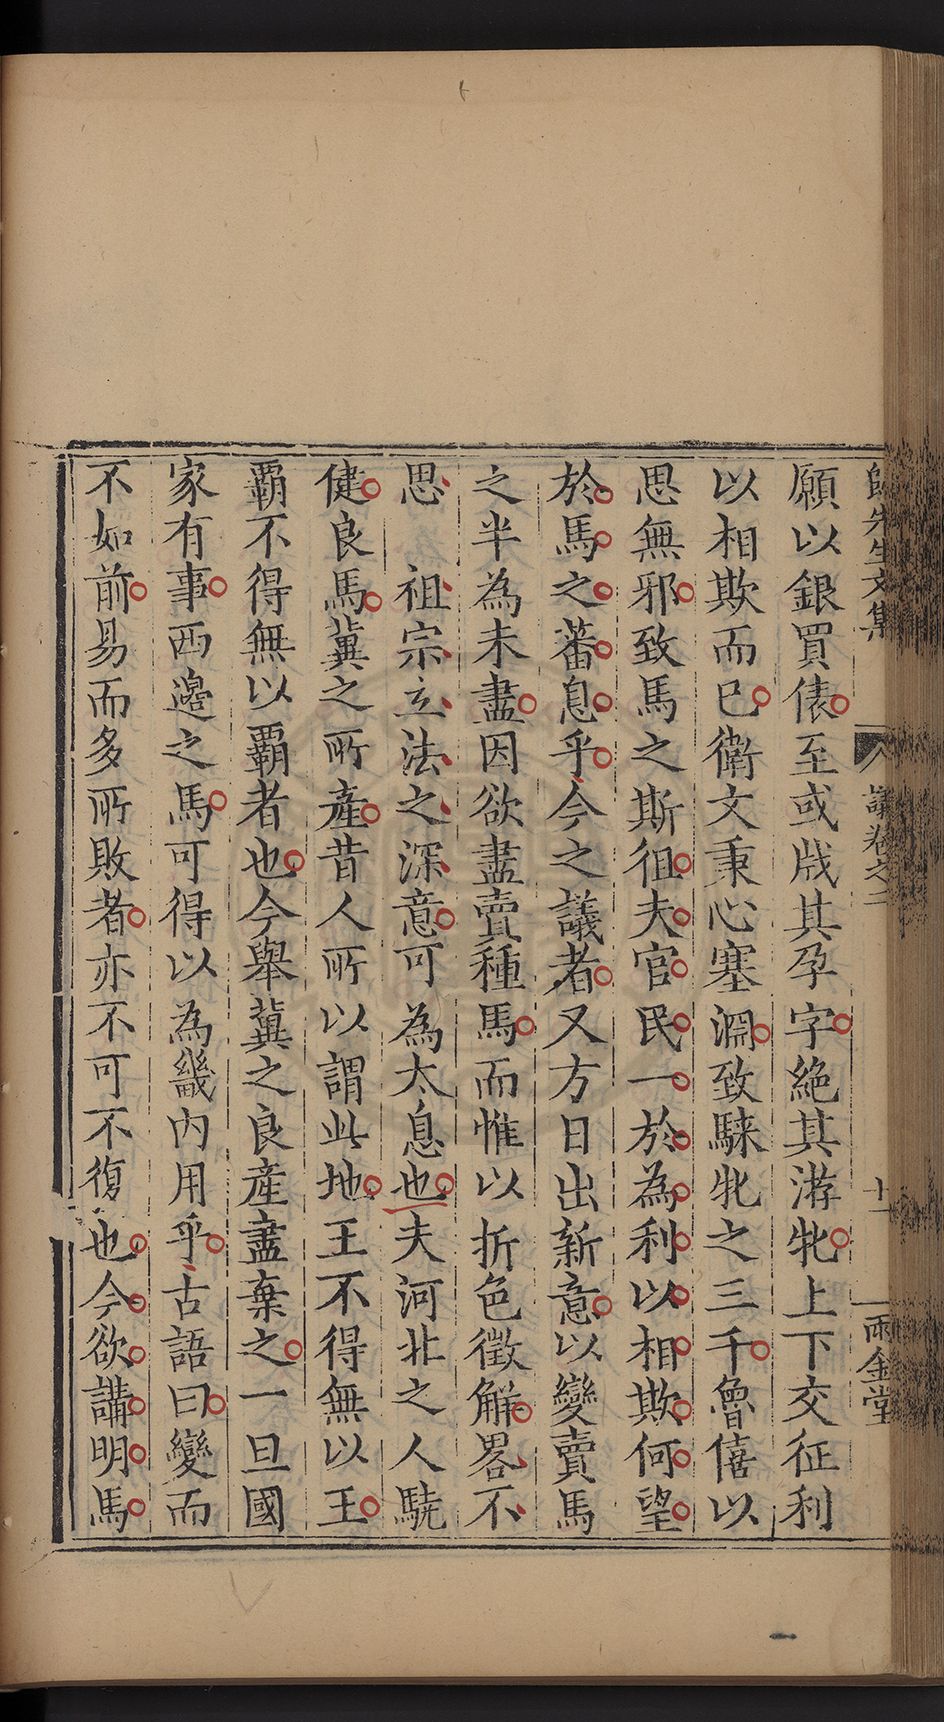 願以銀買俵至或戕其孕字絶其游牝上下交征利
以相欺而已衛文秉心塞淵致騋牝之三千魯僖以
思無邪致馬之斯徂夫官民一於為利以相欺何望
於馬之蕃息乎今之議者又方日出新意以變賣馬
之半為未盡因欲盡賣種馬而惟以折色徵解畧不
思　祖宗立法之深意可為太息也夫河北之人驍
健良馬冀之所產昔人所以謂此地王不得無以王
霸不得無以霸者也今舉冀之良產盡棄之一旦國
家有事西邊之馬可得以為畿內用乎古語曰變而
不如前易而多所敗者亦不可不復也今欲講明馬
先生文集
議卷之二
十一
雨金堂